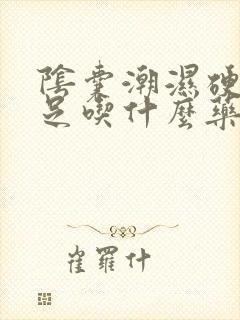 陰囊潮濕硬
足喫什麼藥
崔羅什